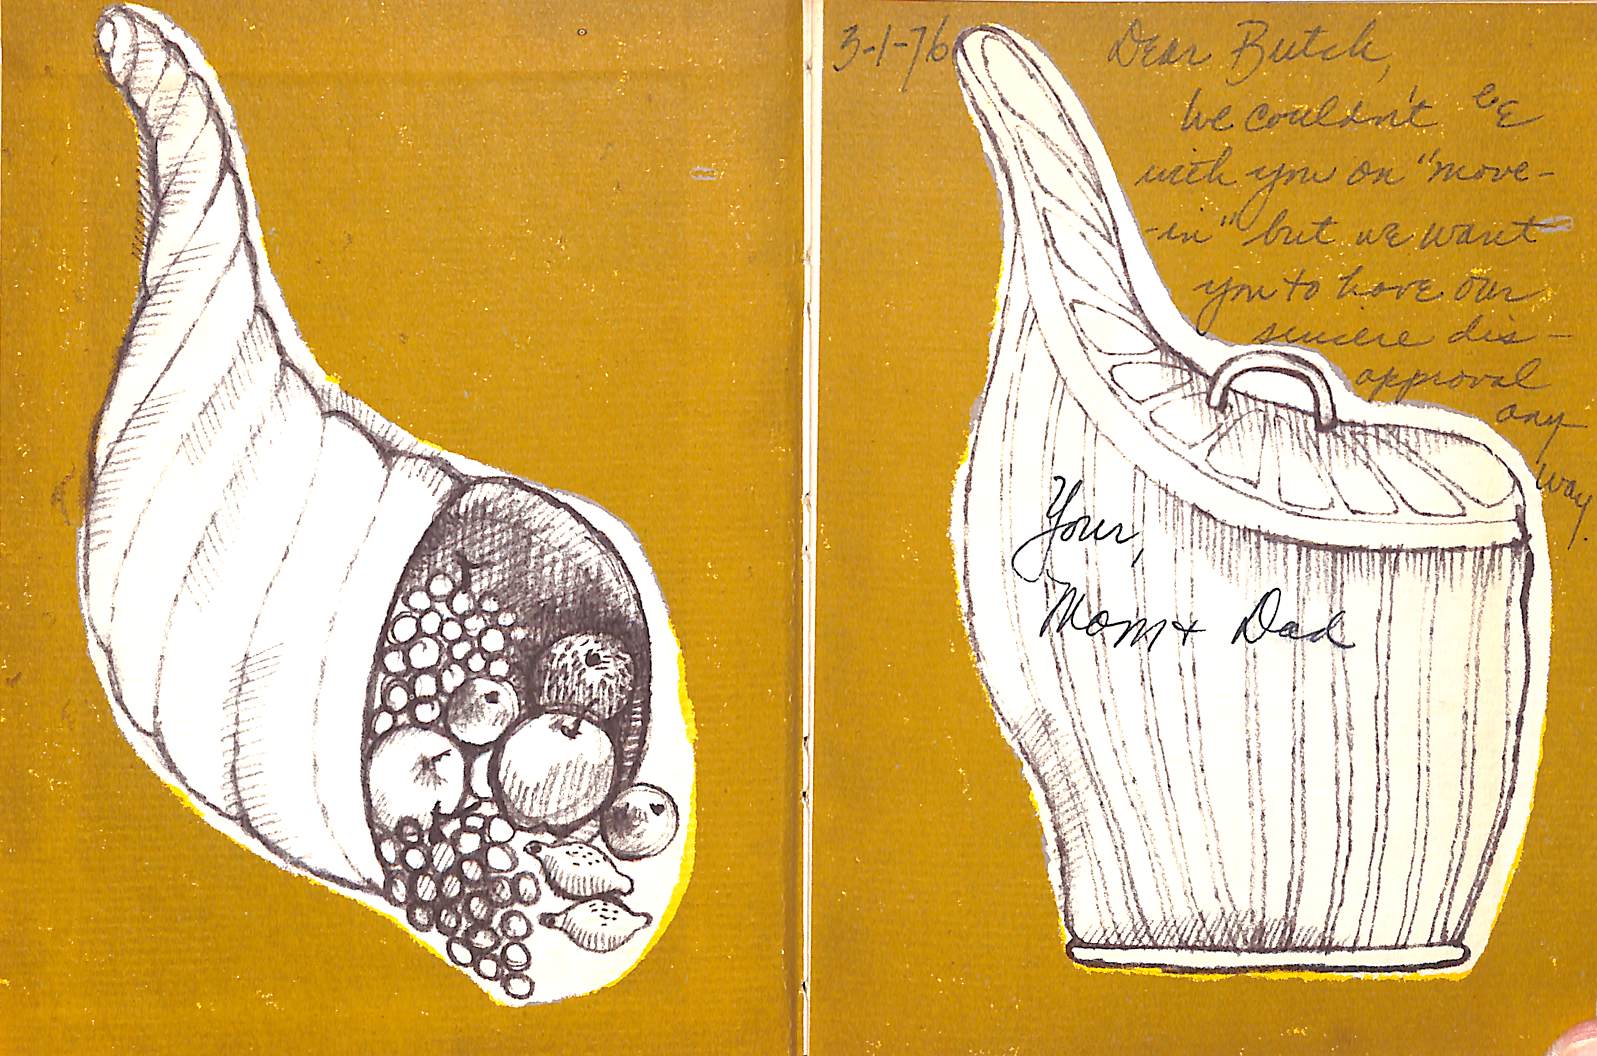 3-1-76
Dear Butch,
We couldn't be
with you on "move-
-in" but we want
you to have our
sincere dis-
approval
any
way.
Your,
Mom + Dad